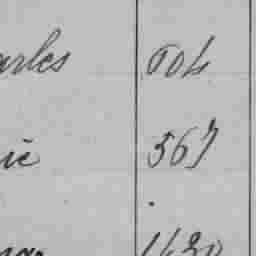 arles 604
ie 567
.
1630